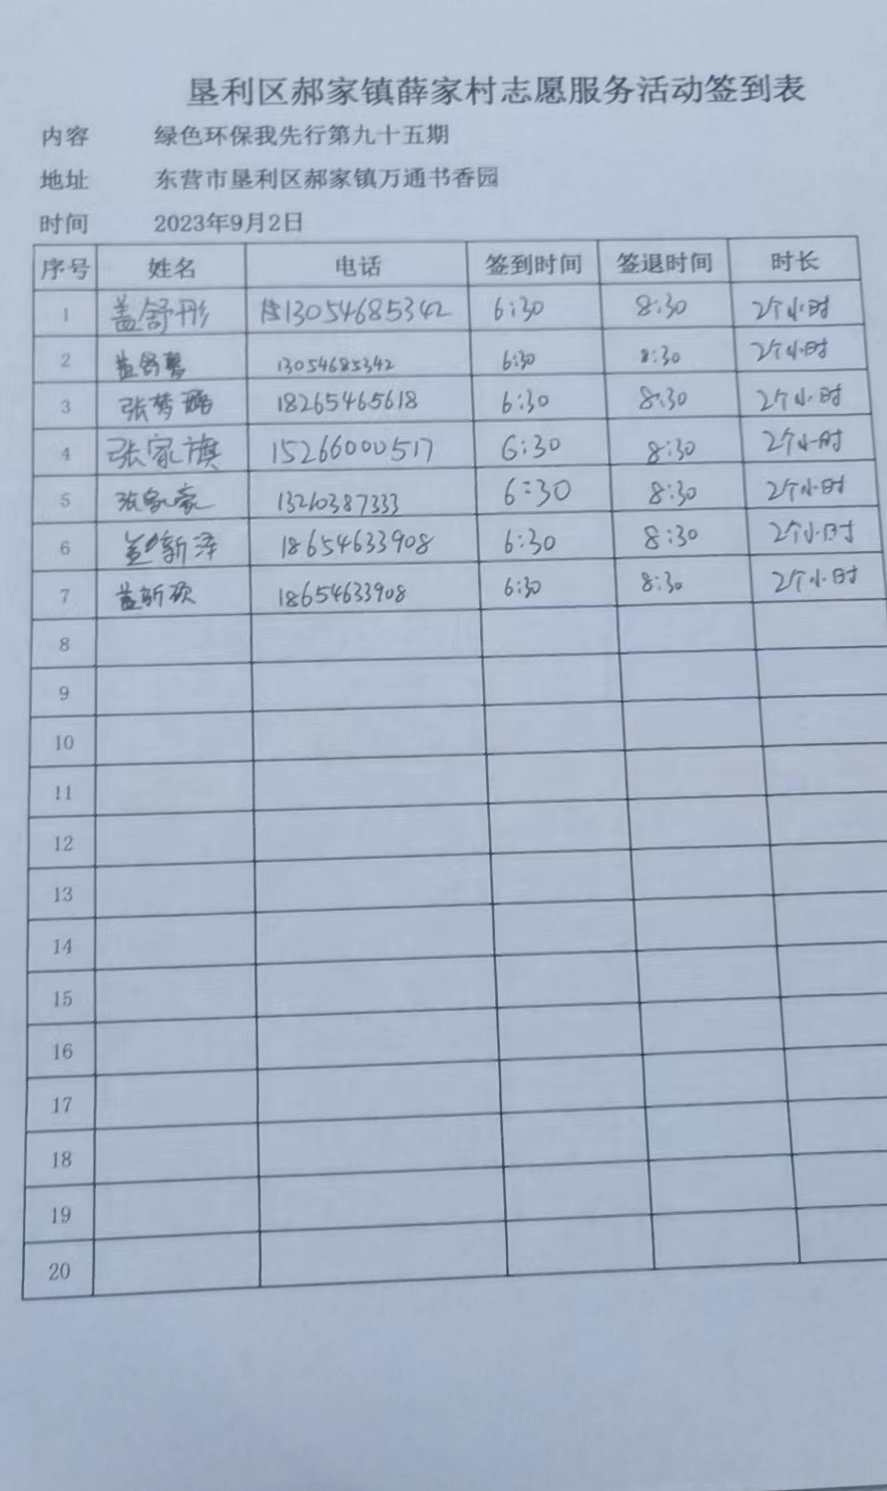 垦利区郝家镇薛家村志愿服务活动签到表
内容 绿色环保我先行第九十五期
地址 东营市垦利区郝家镇万通书香园
时间 2023年9月2日
序号 姓名 电话 签到时间 签退时间 时长
1 盖舒彤 13054685342 6:30 8:30 2个小时
2 盖舒馨 13054685342 6:30 8:30 2个小时
3 张梦 18265465618 6:30 8:30 2个小时
4 张家旗 15266000517 6:30 8:30 2个小时
5 张家豪 13210387333 6:30 8:30 2个小时
6 盖新泽 18654633908 6:30 8:30 2个小时
7 盖新硕 18654633908 6:30 8:30 2个小时
8
9
10
11
12
13
14
15
16
17
18
19
20